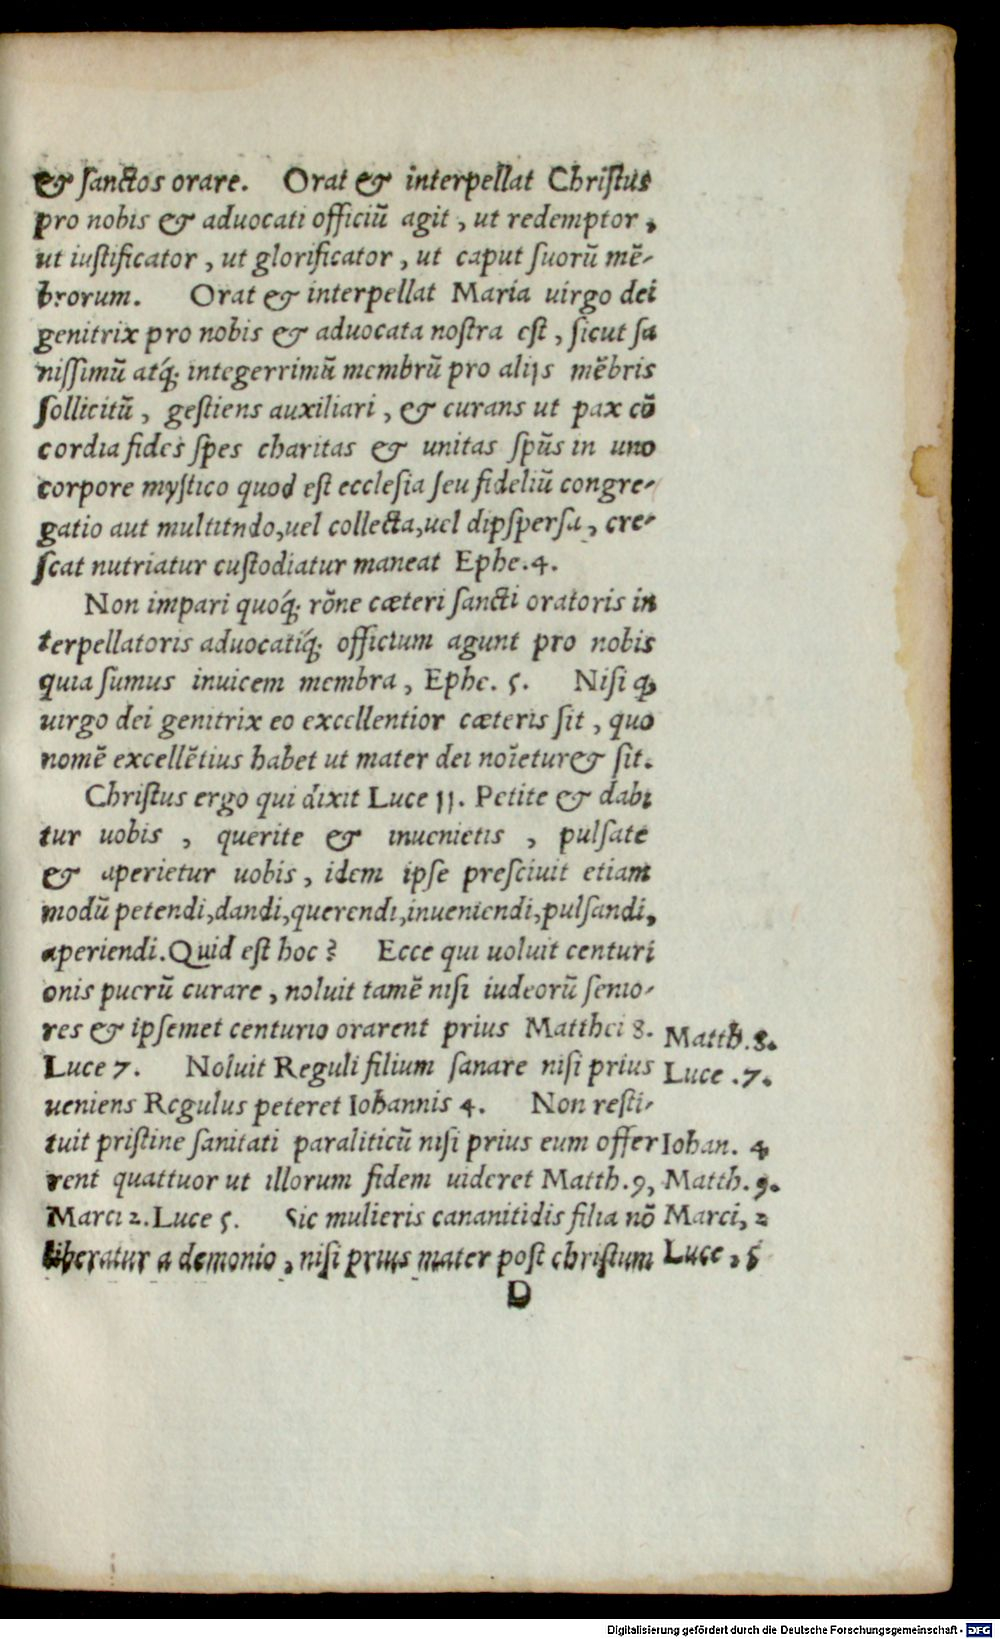 & sanctos orare. Orat & interpellat Christus
pro nobis & aduocati officiū agit, ut redemptor,
ut iustificator, ut glorificator, ut caput suorū mē-
brorum. Orat & interpellat Maria uirgo dei
genitrix pro nobis & aduocata nostra est, sicut sa
nissimū atq́; integerrimū membrū pro alijs mēbris
sollicitū, gestiens auxiliari, & curans ut pax cō
cordia fides spes charitas & unitas spūs in uno
corpore mystico quod est ecclesia seu fideliū congre-
gatio aut multitndo, uel collecta, uel dipspersa, cre-
scat nutriatur custodiatur maneat Ephe. 4.
Non impari quoq́; rōne cæteri sancti oratoris in
terpellatoris aduocatiq́; officium agunt pro nobis
quia sumus inuicem membra, Ephe. 5. Nisi ꝙ
uirgo dei genitrix eo excellentior cæteris sit, quo
nomē excellētius habet ut mater dei noīetur & sit.
Christus ergo qui dixit Luce 11. Petite & dabi
tur uobis, querite & inuenietis, pulsate
& aperietur uobis, idem ipse presciuit etiam
modū petendi, dandi, querendi, inueniendi, pulsandi,
aperiendi. Quid est hoc? Ecce qui uoluit centuri
onis puerū curare, noluit tamē nisi iudeorū senio-
res & ipsemet centurio orarent prius Matthei 8.
Matth. 8.
Luce 7. Noluit Reguli filium sanare nisi prius
Luce. 7.
ueniens Regulus peteret Iohannis 4. Non resti-
tuit pristine sanitati paraliticū nisi prius eum offer
Iohan. 4
rent quattuor ut illorum fidem uideret Matth. 9,
Matth. 9.
Marci 2. Luce 5. Sic mulieris cananitidis filia nō
Marci, 2
liberatur a demonio, nisi prius mater post christum
Luce, 5
D
Digitalisierung gefördert durch die Deutsche Forschungsgemeinschaft - DFG